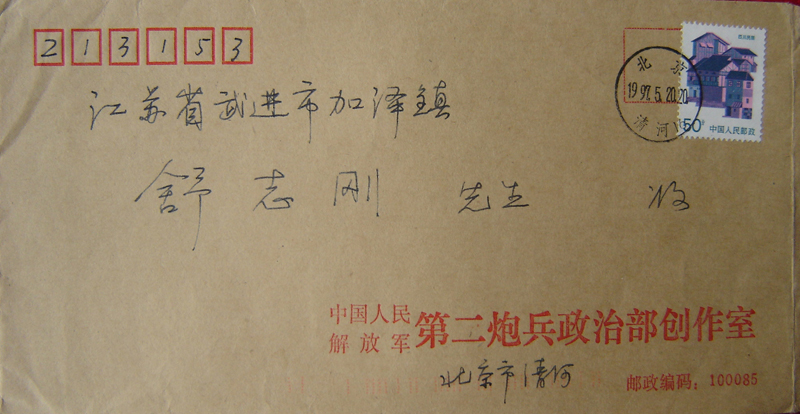 213153
江苏省武进市加泽镇
舒志刚 先生 收
北京
1997.5.20.20
清河
50分 中国人民邮政
中国人民
解放军 第二炮兵政治部创作室
北京市清河 邮政编码：100085